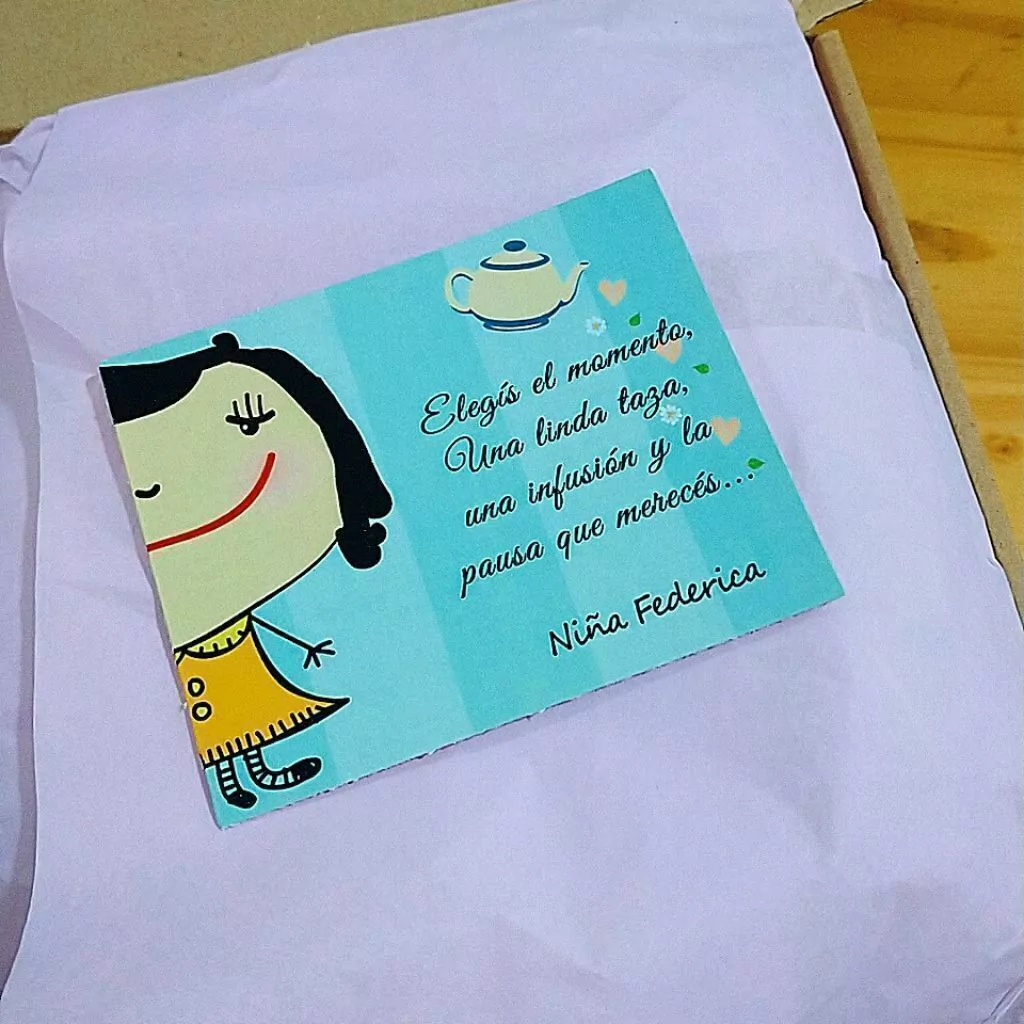 Elegís el momento,
Una linda taza,
una infusión y la
pausa que merecés...
Niña Federica